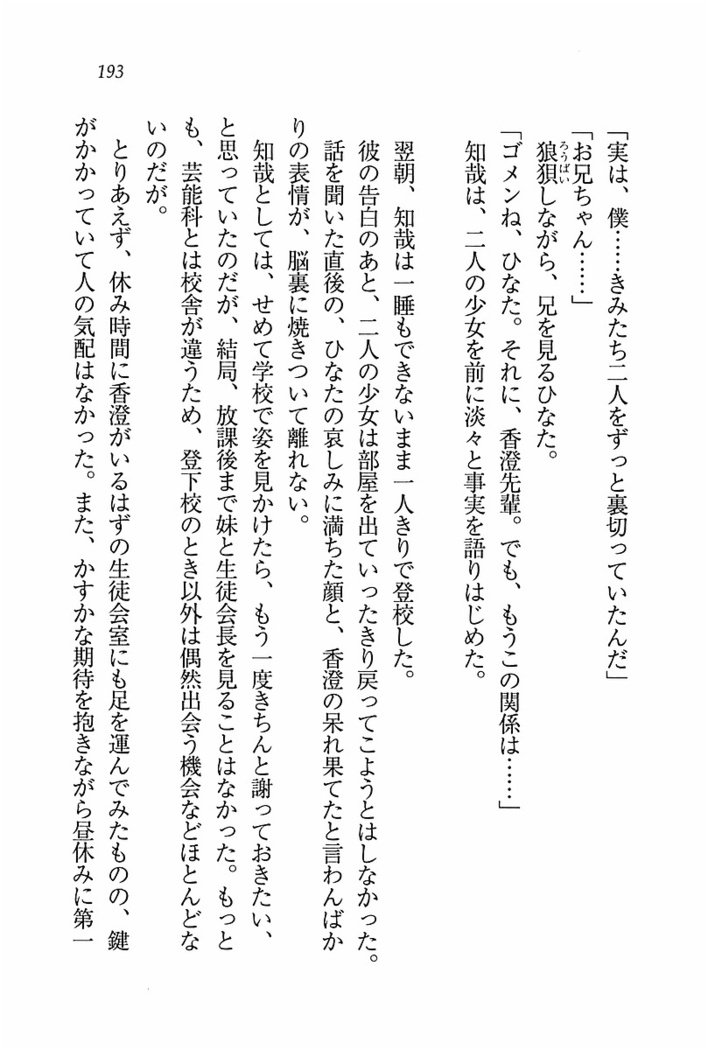 193
「実は、僕……きみたち二人をずっと裏切っていたんだ」
「お兄ちゃん……」
狼狽しながら、兄を見るひなた。
ろうばい
「ゴメンね、ひなた。それに、香澄先輩。でも、もうこの関係は……」
知哉は、二人の少女を前に淡々と事実を語りはじめた。
翌朝、知哉は一睡もできないまま一人きりで登校した。
彼の告白のあと、二人の少女は部屋を出ていったきり戻ってこようとはしなかった。
話を聞いた直後の、ひなたの哀しみに満ちた顔と、香澄の呆れ果てたと言わんばか
りの表情が、脳裏に焼きついて離れない。
知哉としては、せめて学校で姿を見かけたら、もう一度きちんと謝っておきたい、
と思っていたのだが、結局、放課後まで妹と生徒会長を見ることはなかった。もっと
も、芸能科とは校舎が違うため、登下校のとき以外は偶然出会う機会などほとんどな
いのだが。
とりあえず、休み時間に香澄がいるはずの生徒会室にも足を運んでみたものの、鍵
がかかっていて人の気配はなかった。また、かすかな期待を抱きながら昼休みに第一